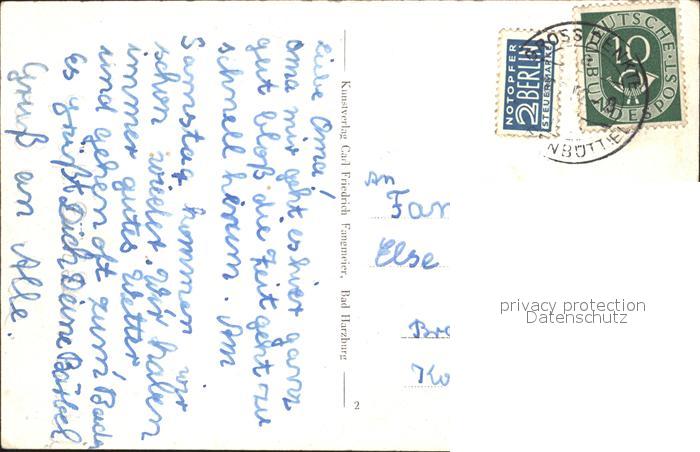 Liebe Oma!
Oma mir geht es hier ganz
gut bloß die Zeit geht zu
schnell herum. Am
Samstag kommen wir
schon wieder. Wir haben
immer gutes Wetter
und gehen oft zum Bach
Es grüßt Dich Deine Bärbel
Gruß an Alle.
Kunstverlag Carl Friedrich Fangmeier, Bad Harzburg
2
NOTOPFER
2 BERLIN
STEUERMARKE
DEUTSCHE
BUNDESPOST
10
GROSS DENKTE
An
Else
privacy protection
Datenschutz